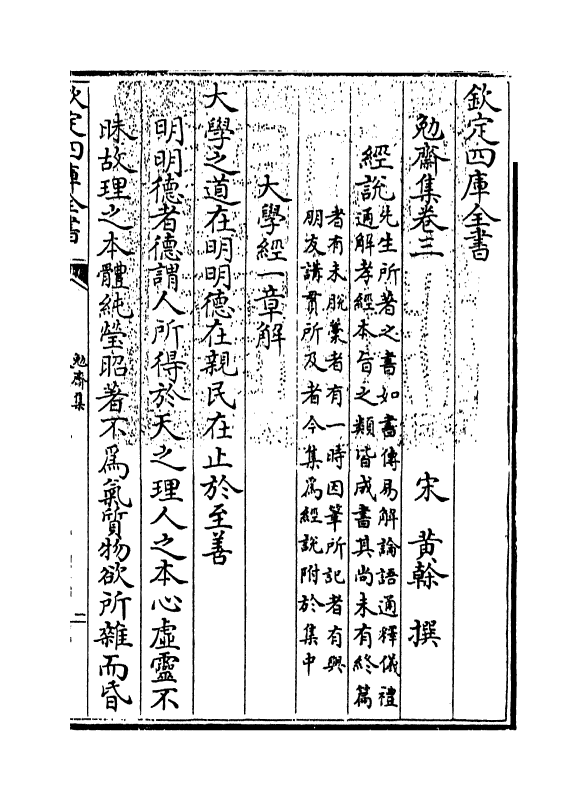 欽定四庫全書
勉齋集卷三
宋 黃榦 撰
經說
先生所著之書如書傳易解論語通釋儀禮
通解孝經本旨之類皆成書其尚未有終篇
者有未脫藁者有一時因筆所記者有與
朋友講貫所及者今集爲經說附於集中
大學經一章解
大學之道在明明德在親民在止於至善
明明德者德謂人所得於天之理人之本心虛靈不
昧故理之本體純瑩昭著不爲氣質物欲所雜而昏
欽定四庫全書
勉齋集